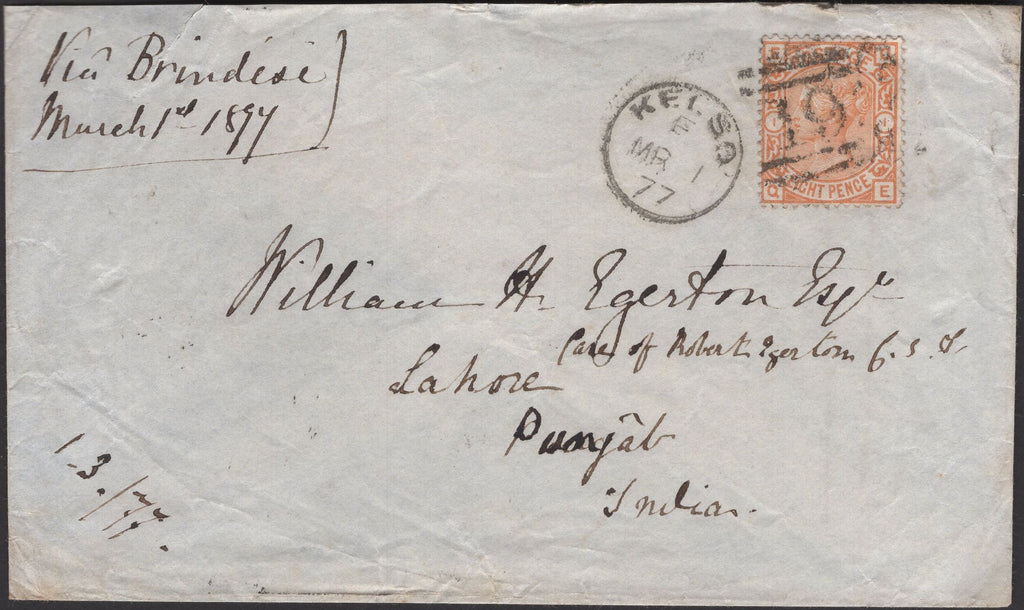 Via Brindisi
March 1st 1877
KELSO
E
MR 1
77
19
EIGHT PENCE
Q E
William H. Egerton Esqr
Care of Robert Egerton C.S.I.
Lahore
Punjâb
India.
1-3./77.